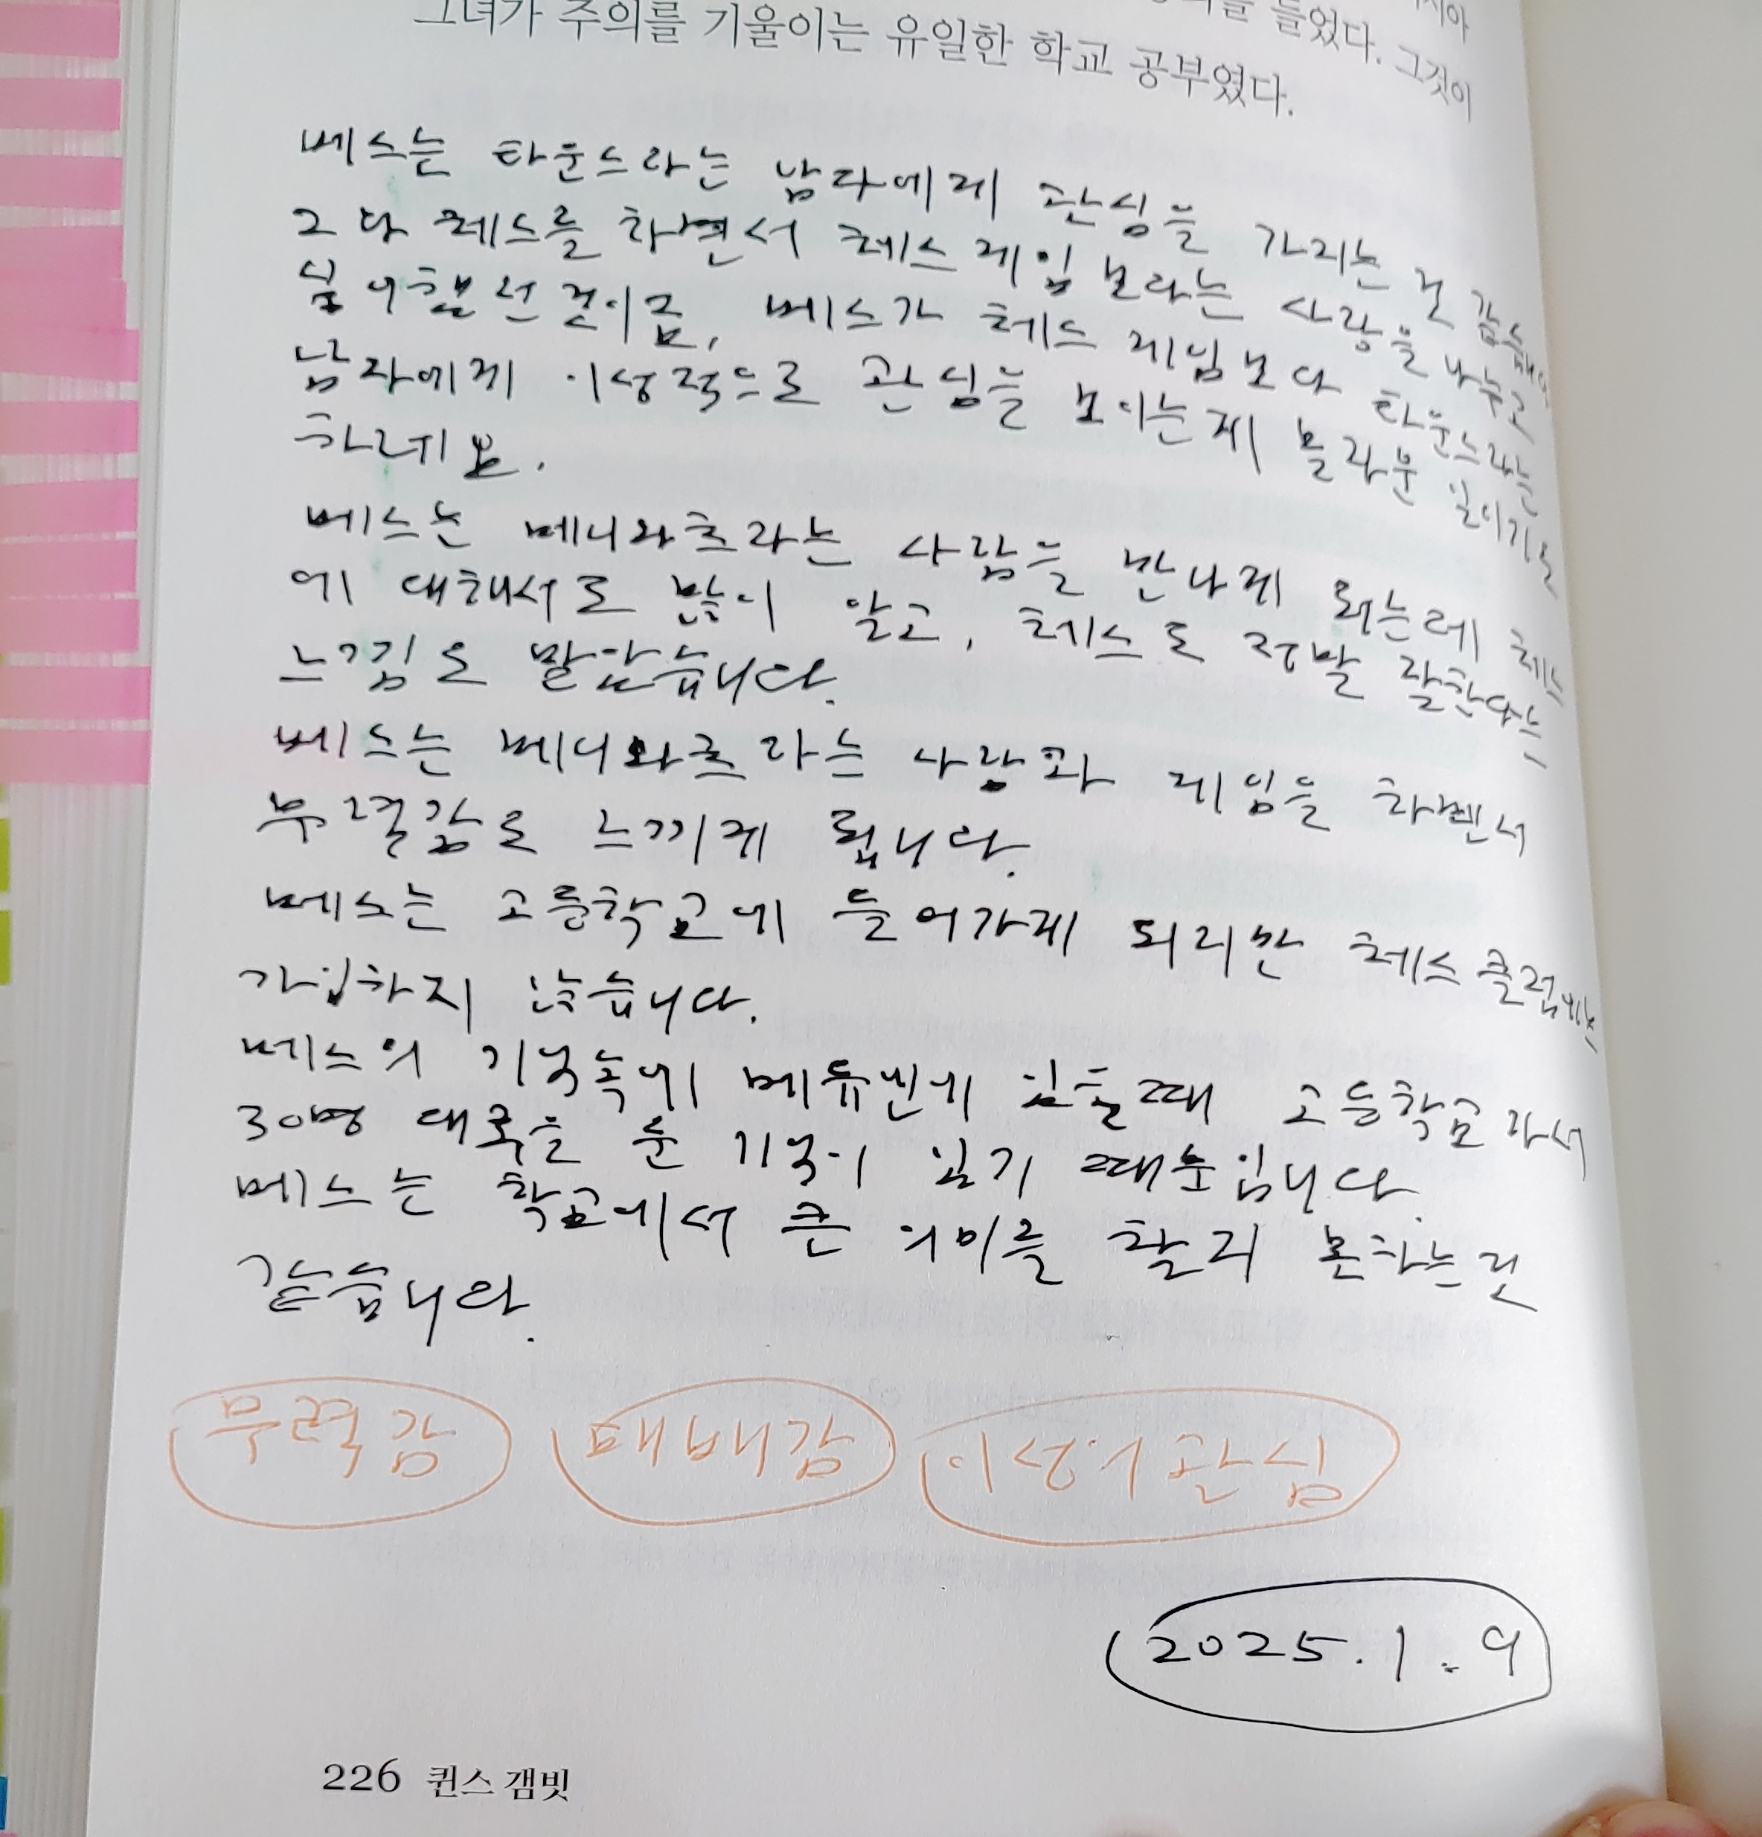 들었다. 그것이
그녀가 주의를 기울이는 유일한 학교 공부였다.
베스는 타운스라는 남자에게 관심을 가지는
체스를 하면서 체스 게임보다는 사랑을 나누고
싶어했던 것이죠, 베스가 체스 게임보다 타운스라는
남자에게 이성적으로 관심을 보이는게 놀라운 일이기도
하네요.
베스는 베니와츠라는 사람을 만나게 되는데 체스
에 대해서도 많이 알고, 체스도 정말 잘한다는
느낌도 받았습니다.
베스는 베니와츠라는 사람과 게임을 하면서
무력감도 느끼게 됩니다.
베스는 고등학교에 들어가게 되지만 체스 클럽에는
가입하지 않습니다.
베스의 기억속에 메듀벤에 있을때 고등학교가서
30명 대국을 둔 기억이 있기 때문입니다.
베스는 학교에서 큰 의미를 찾지 못하는것
같습니다.
무력감 패배감 이성의 관심
2025.1.9
226 퀸스 갬빗